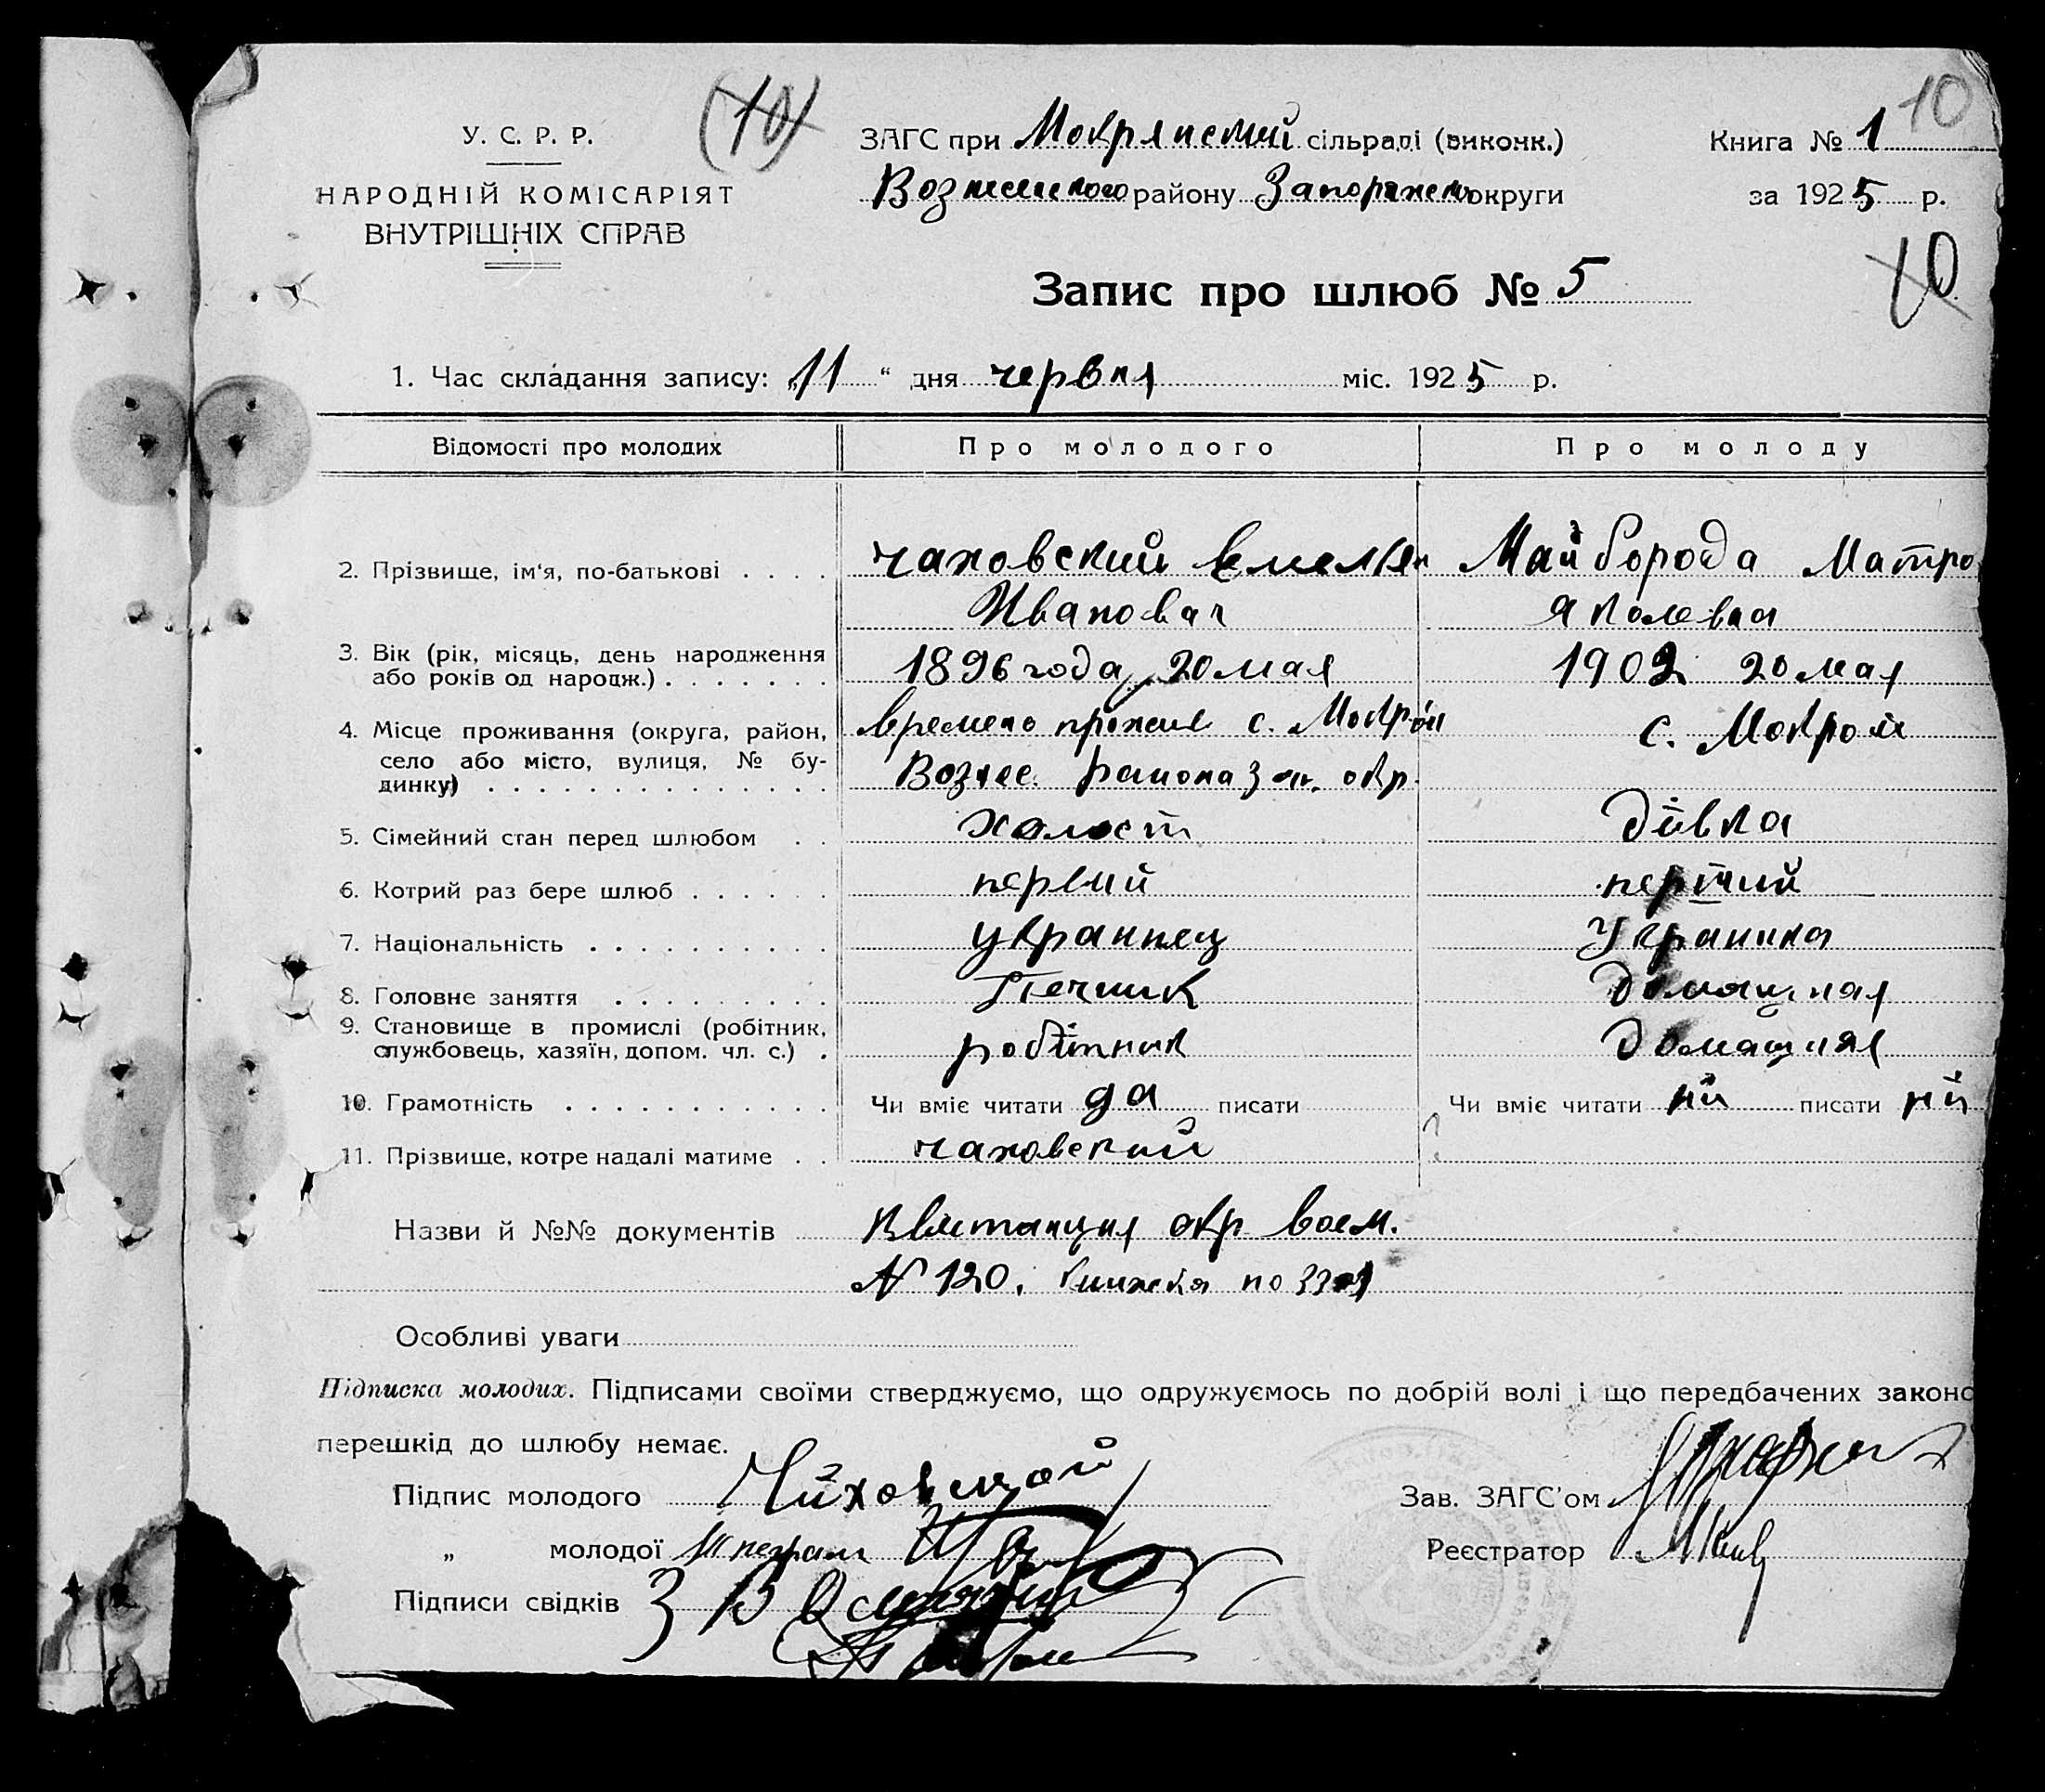 (10)
10
У. С. Р. Р.
ЗАГС при Мокрянский сільраді (виконк.)
Книга № 1
НАРОДНІЙ КОМІСАРІЯТ
Вознесенского району Запорожск округи
за 1925 р.
ВНУТРІШНІХ СПРАВ
10
Запис про шлюб № 5
1. Час складання запису: „11“ дня червня міс. 1925 р.
Відомості про молодих Про молодого Про молоду
2. Прізвище, ім‘я, по-батькові . . . . Чаховский Емельян Майборода Матро
Иванович Яколевна
3. Вік (рік, місяць, день народження
або років од народж.) . . . . . . . 1896 года 20 мая 1902 20 мая
4. Місце проживання (округа, район, Времено прожив с. Мокрой с. Мокрой
село або місто, вулиця, № бу-
динку) . . . . . . . . . . . . . . Вознес. района Зап. окр.
5. Сімейний стан перед шлюбом . . холост дівка
6. Котрий раз бере шлюб . . . . . . первий перший
7. Національність . . . . . . . . . . украинец Украинка
8. Головне заняття . . . . . . . . . Печник Домашная
9. Становище в промислі (робітник,
службовець, хазяїн, допом. чл. с.) . робітник домашная
10. Грамотність . . . . . . . . . . . Чи вміє читати да писати Чи вміє читати ні писати ні
11. Прізвище, котре надалі матиме . . Чаховский
Назви й №№ документів Квитанция окр воен.
№ 120. книжка по
Особливі уваги
Підписка молодих. Підписами своїми стверджуємо, що одружуємось по добрій волі і що передбачених законо
перешкід до шлюбу немає.
Підпис молодого Чиховской
Зав. ЗАГС’ом
„ молодої неграм
Реєстратор
Підписи свідків